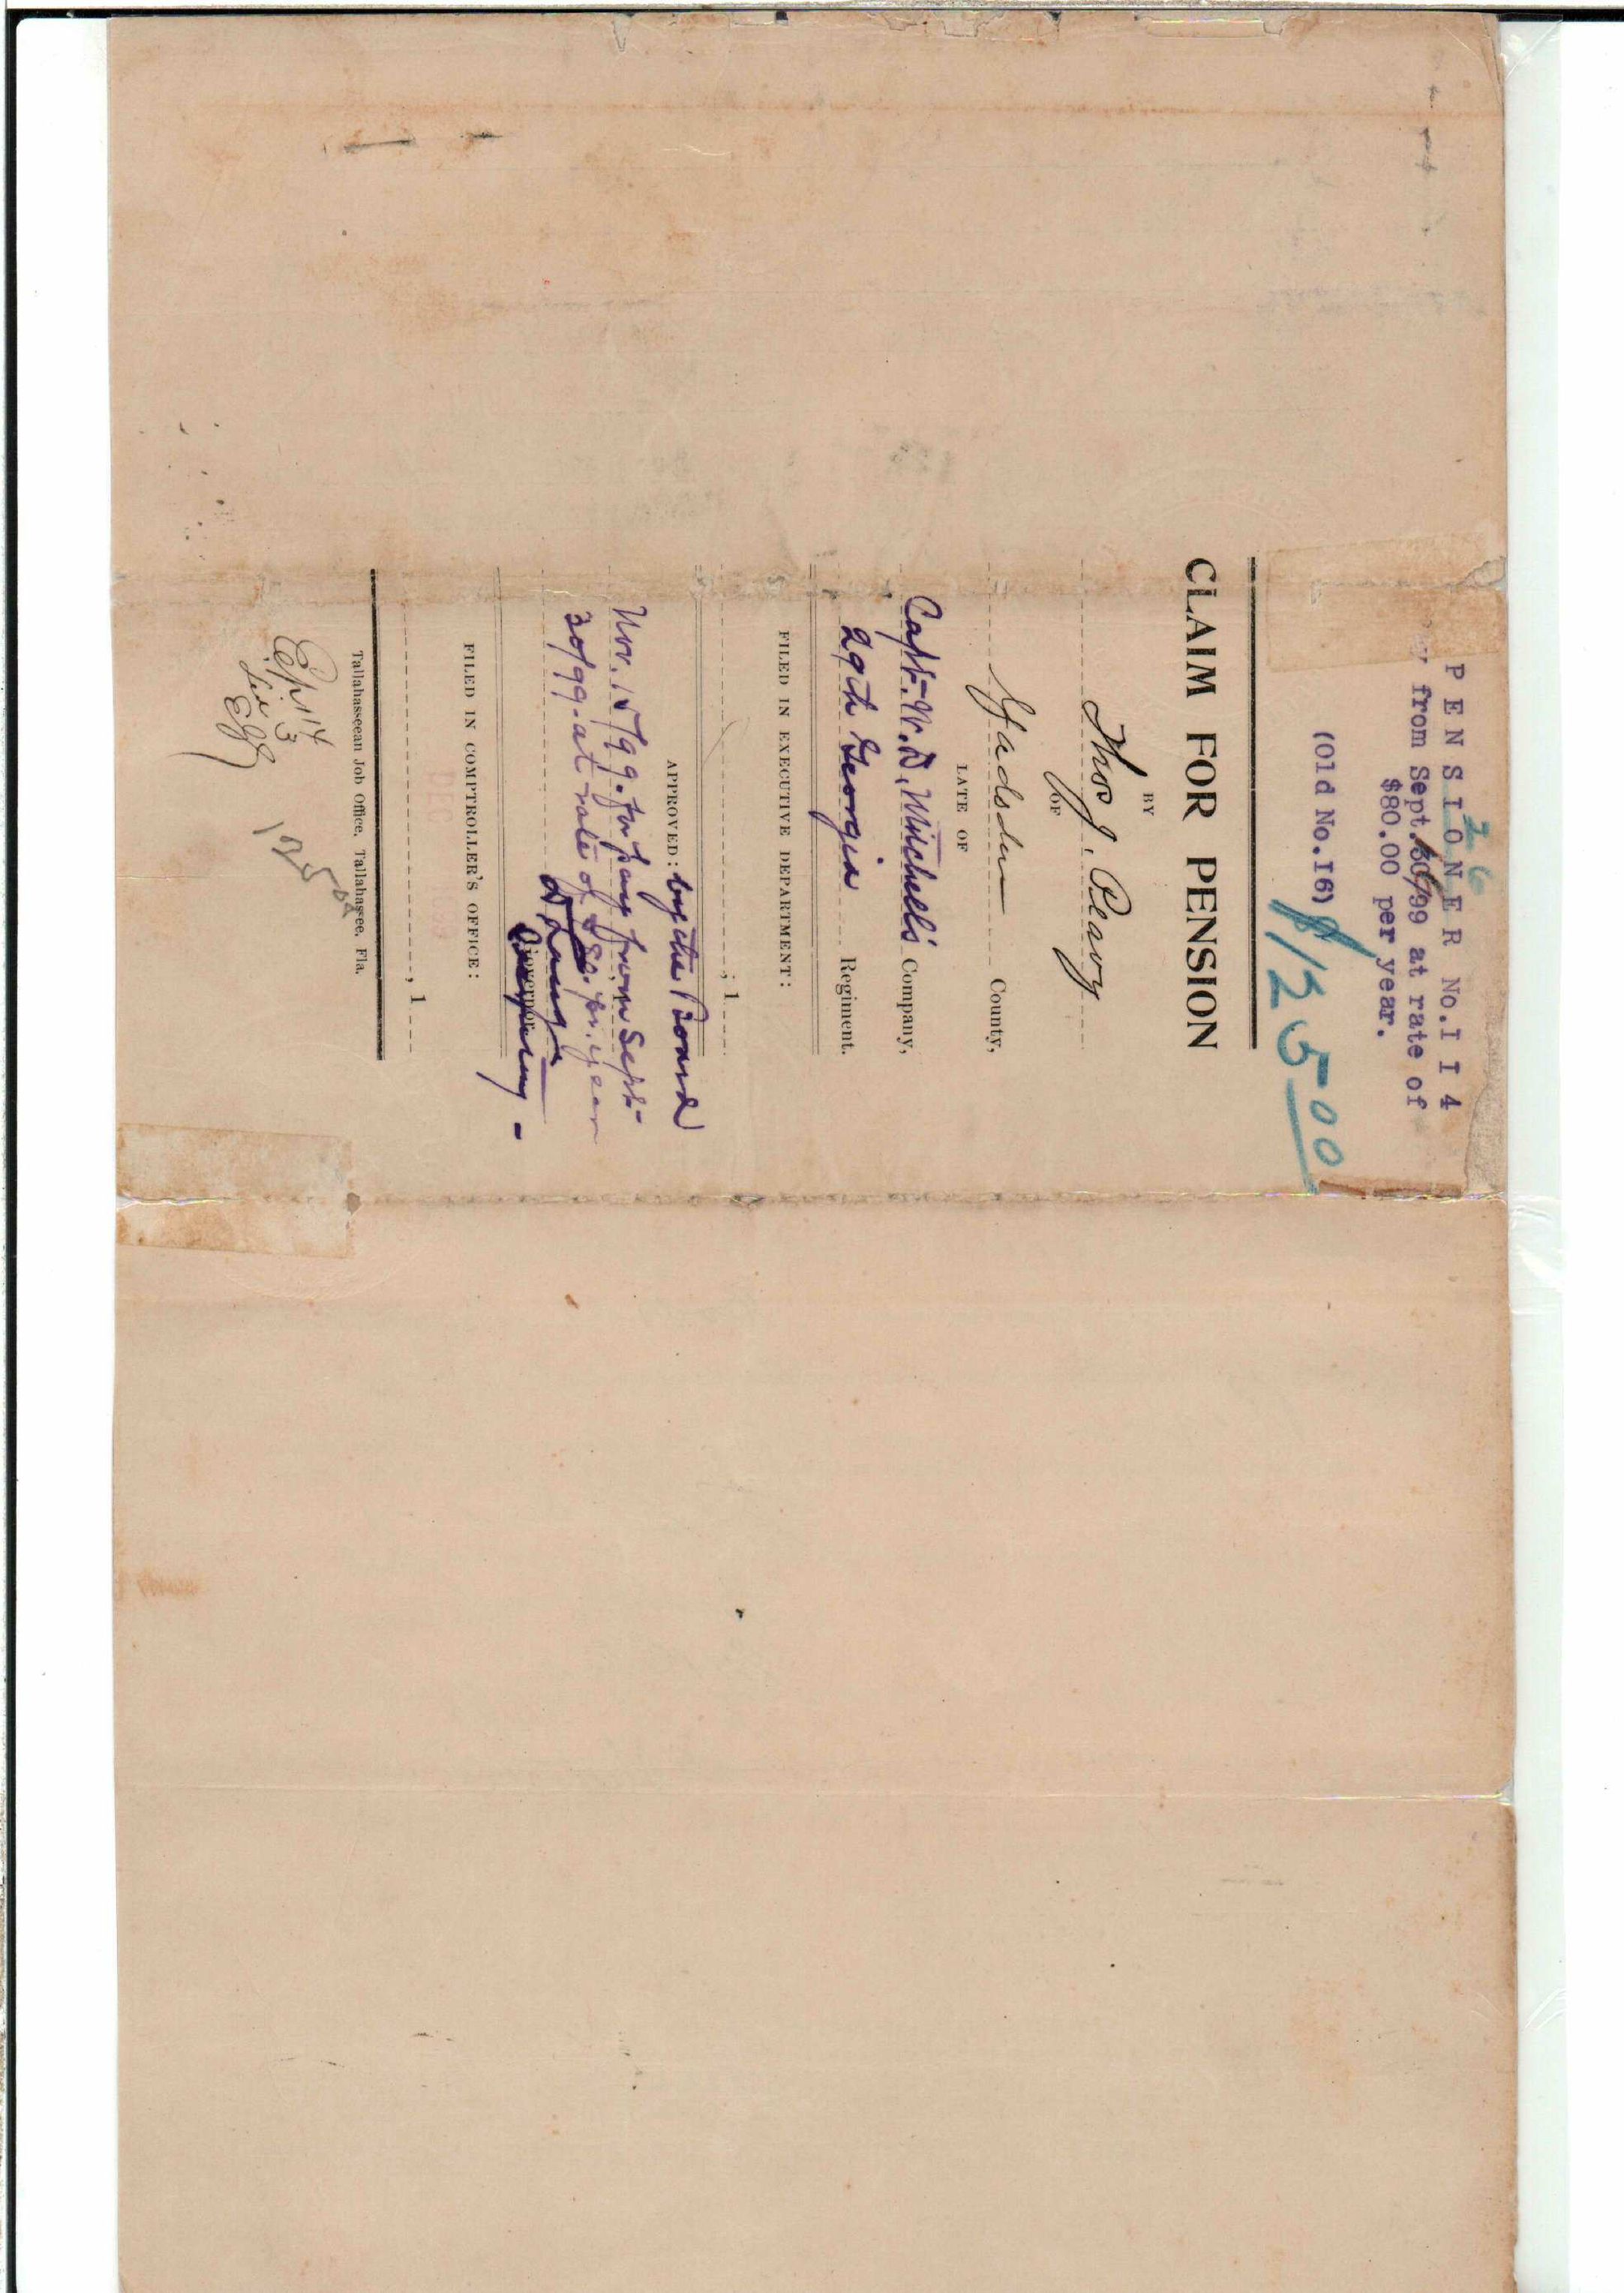 26
PENSIONER No.II4
from Sept.30/99 at rate of
$80.00 per year.
(Old No.I6)
$125 00
CLAIM FOR PENSION
BY
Thos J. Peavy
OF
Gadsden County,
LATE OF
Capt. W. D. Mitchell's Company,
29th Georgia Regiment.
FILED IN EXECUTIVE DEPARTMENT:
, 1
APPROVED: by the Board
Nov. 15/99. for pay from Sept.
30/99. at rate of $80. pr. year
D Lang
Governor.
FILED IN COMPTROLLER'S OFFICE:
DEC
, 1
Tallahasseean Job Office, Tallahassee, Fla.
3
125 00